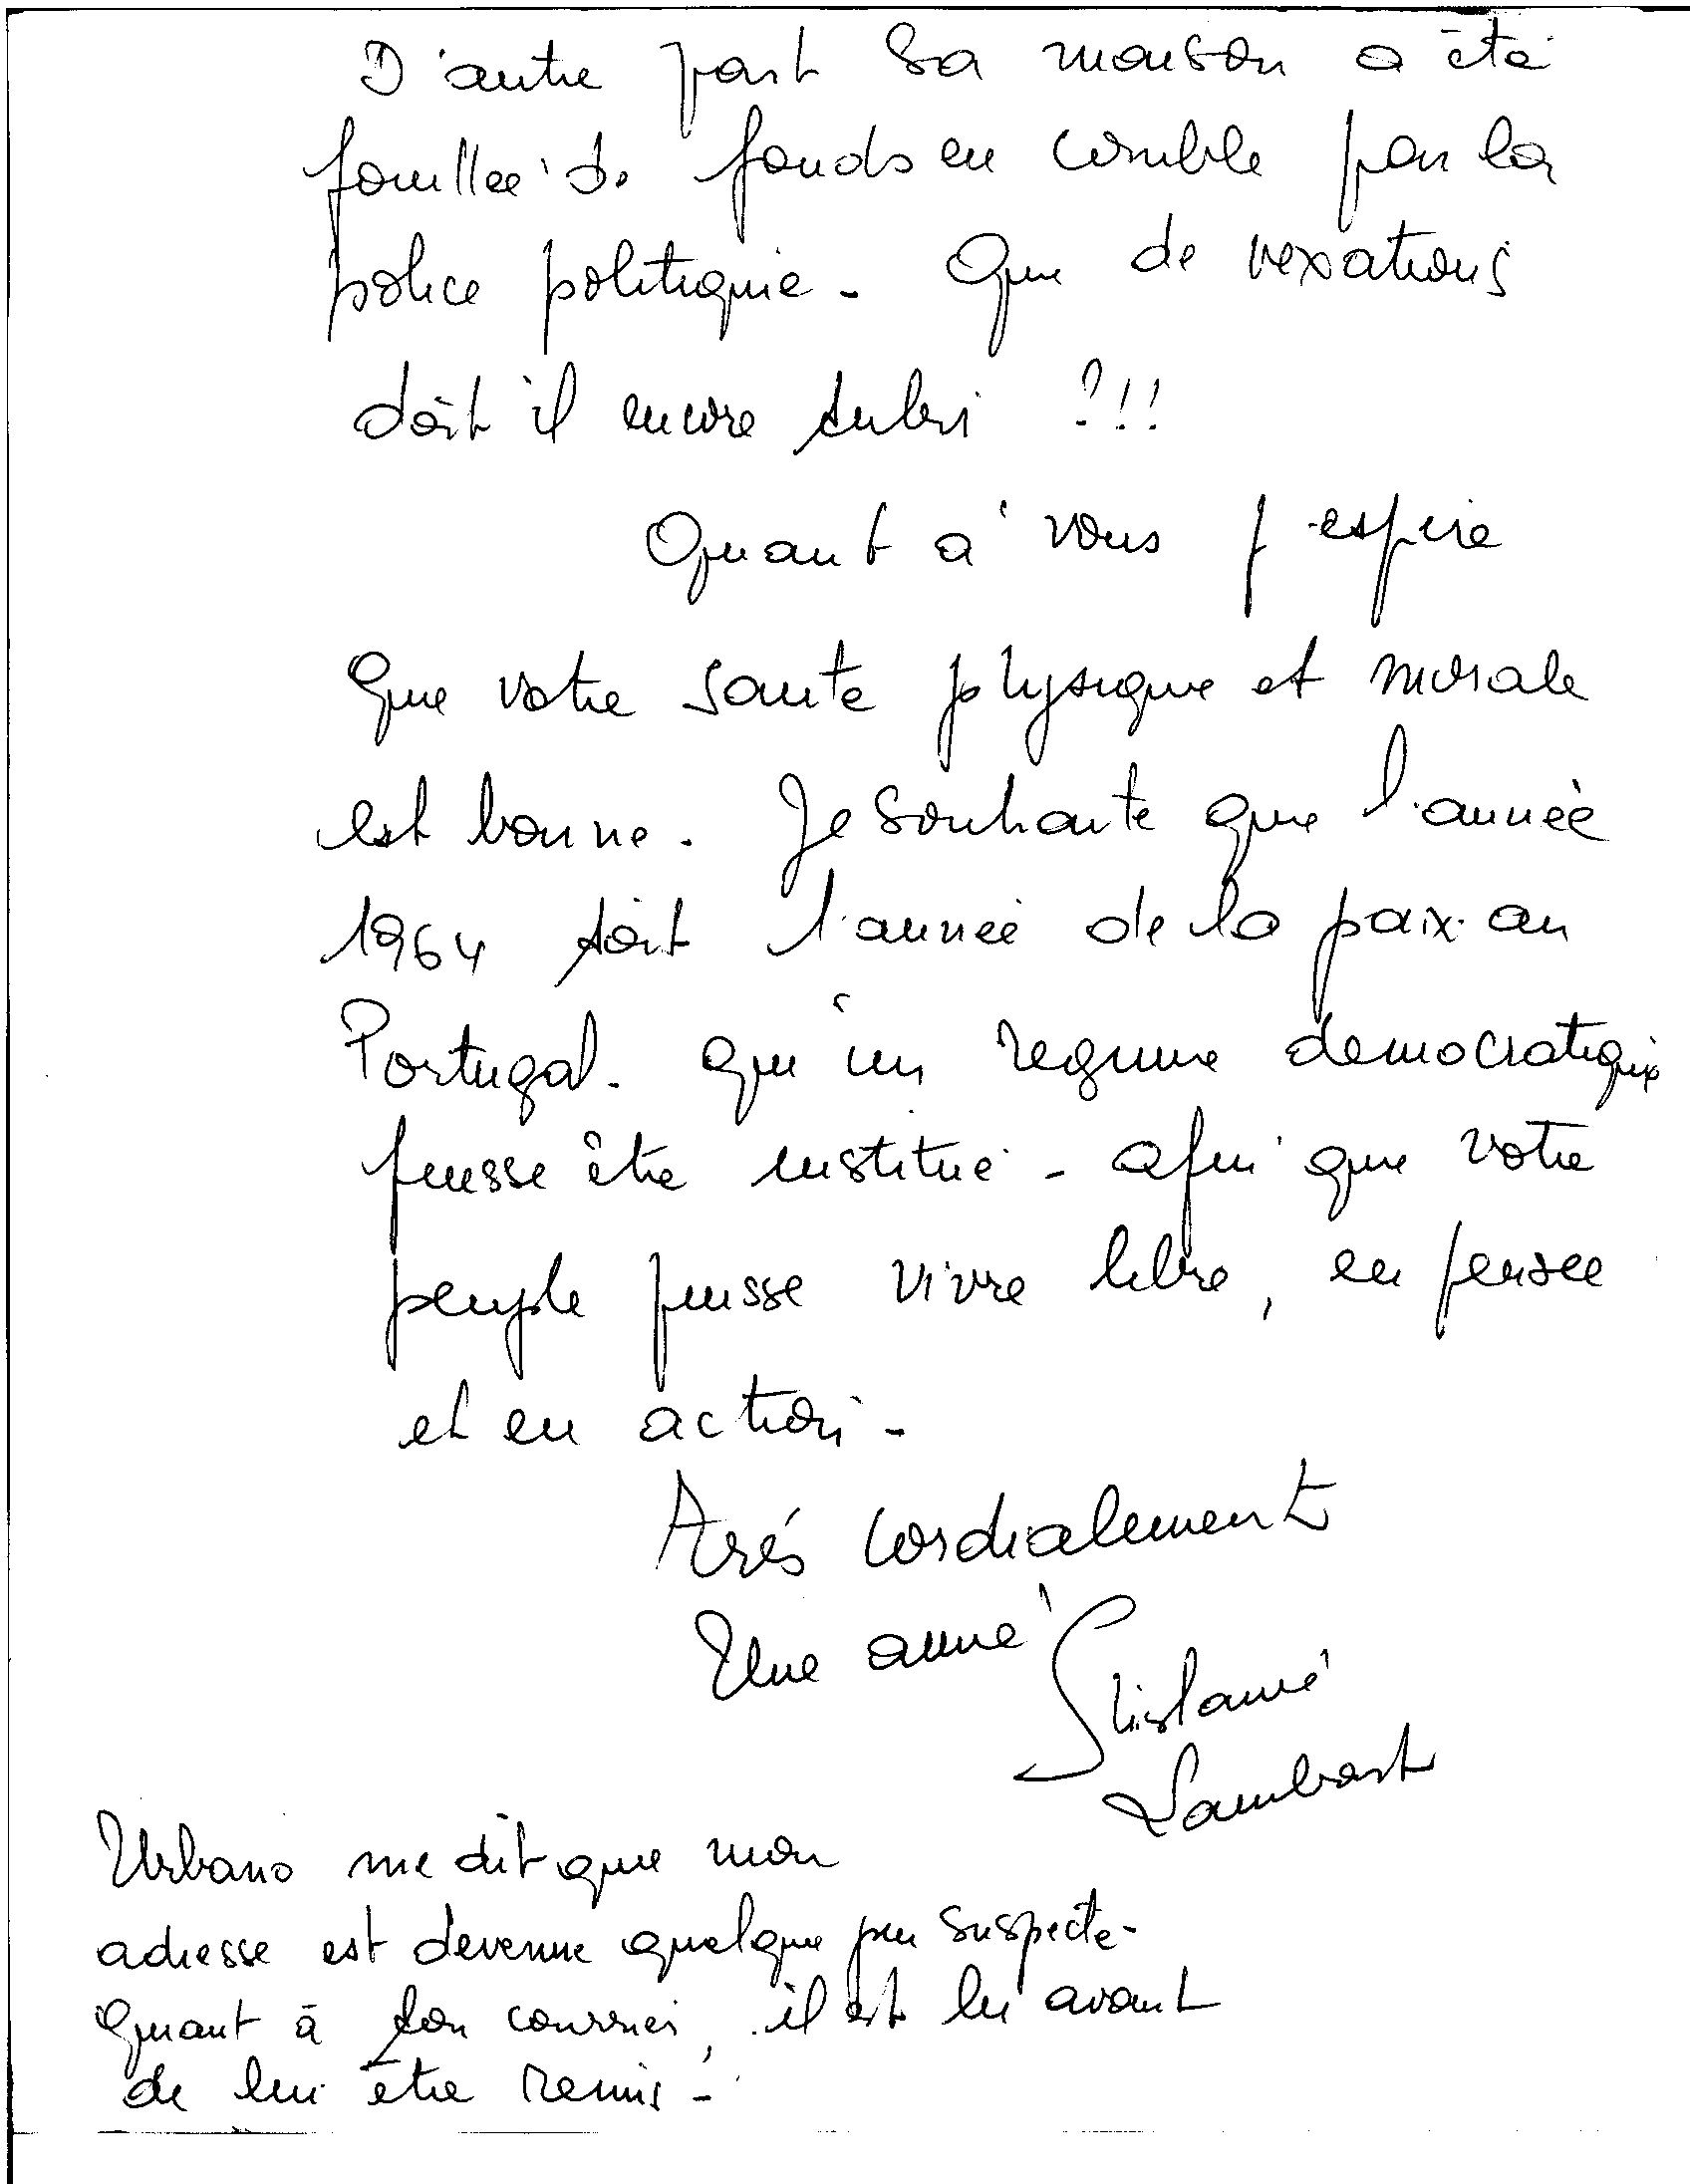 D'autre part sa maison a été
fouillée de fonds en comble par la
police politique - Que de vexations
doit il encore subir ?!!
Quant à vous j'espère
que votre santé physique et morale
est bonne. Je souhaite que l'année
1964 soit l'année de la paix au
Portugal - qu'un regime democratique
puisse être institué - afin que votre
peuple puisse vivre libre, en pensée
et en action -
Très cordialement
Une amie
Ghislaine
Lambert
Urbano me dit que mon
adresse est devenue quelque peu suspecte -
Quant à son courrier, il est lu avant
de lui être remis -